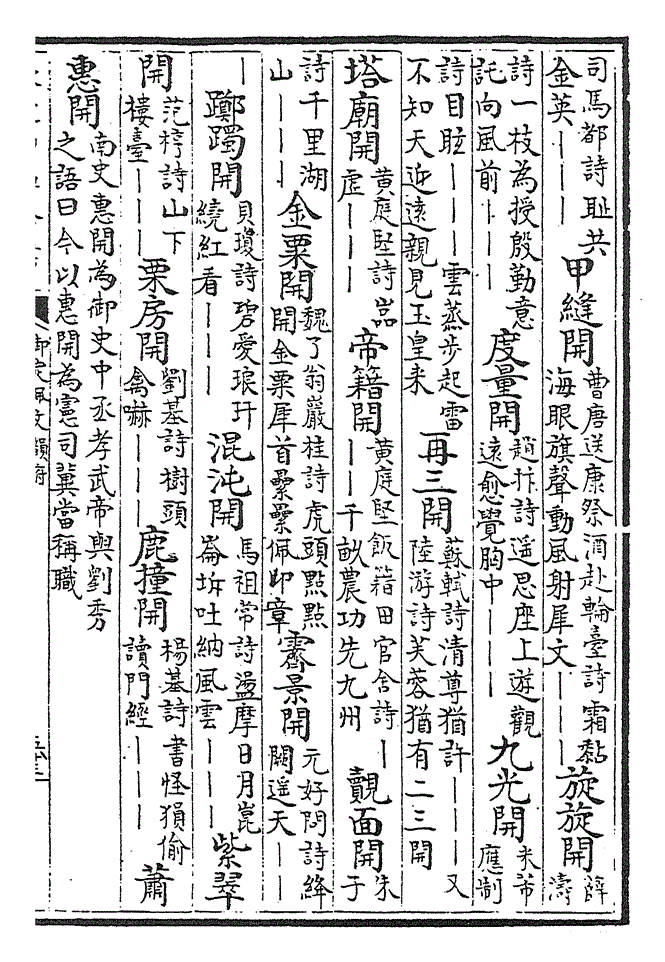 司馬都詩耻共
金英｜｜｜
甲縫開
曹唐送康祭酒赴輪臺詩霜黏
海眼旗聲動風射犀文｜｜｜
旋旋開
薛
濤
詩一枝為授殷勤意
託向風前｜｜｜
度量開
趙抃詩遥思座上遊觀
遠愈覺胸中｜｜｜
九光開
米芾
應制
詩目眩｜｜｜雲蒸步起雷
不知天近遠親見玉皇来
再三開
蘇軾詩清尊猶許｜｜｜又
陸游詩芙蓉猶有二三開
塔廟開
黄庭堅詩嵓
虚｜｜｜
帝籍開
黄庭堅飯籍田官舍詩｜
｜｜千畝農功先九州
覿面開
朱
子
詩千里湖
山｜｜｜
金粟開
魏了翁巖桂詩虎頭點點
開金粟犀首纍纍佩印章
霽景開
元好問詩絳
闕遥天｜｜
｜
躑躅開
貝瓊詩碧愛琅玕
繞紅看｜｜｜
混沌開
馬祖常詩盪摩日月崑
崙坼吐納風雲｜｜｜
紫翠
開
范梈詩山下
樓臺｜｜｜
栗房開
劉基詩樹頭
禽嚇｜｜｜
鹿撞開
楊基詩書怪猿偷
讀門經｜｜｜
蕭
惠開
南史惠開為御史中丞孝武帝與劉秀
之語曰今以惠開為憲司冀當稱職